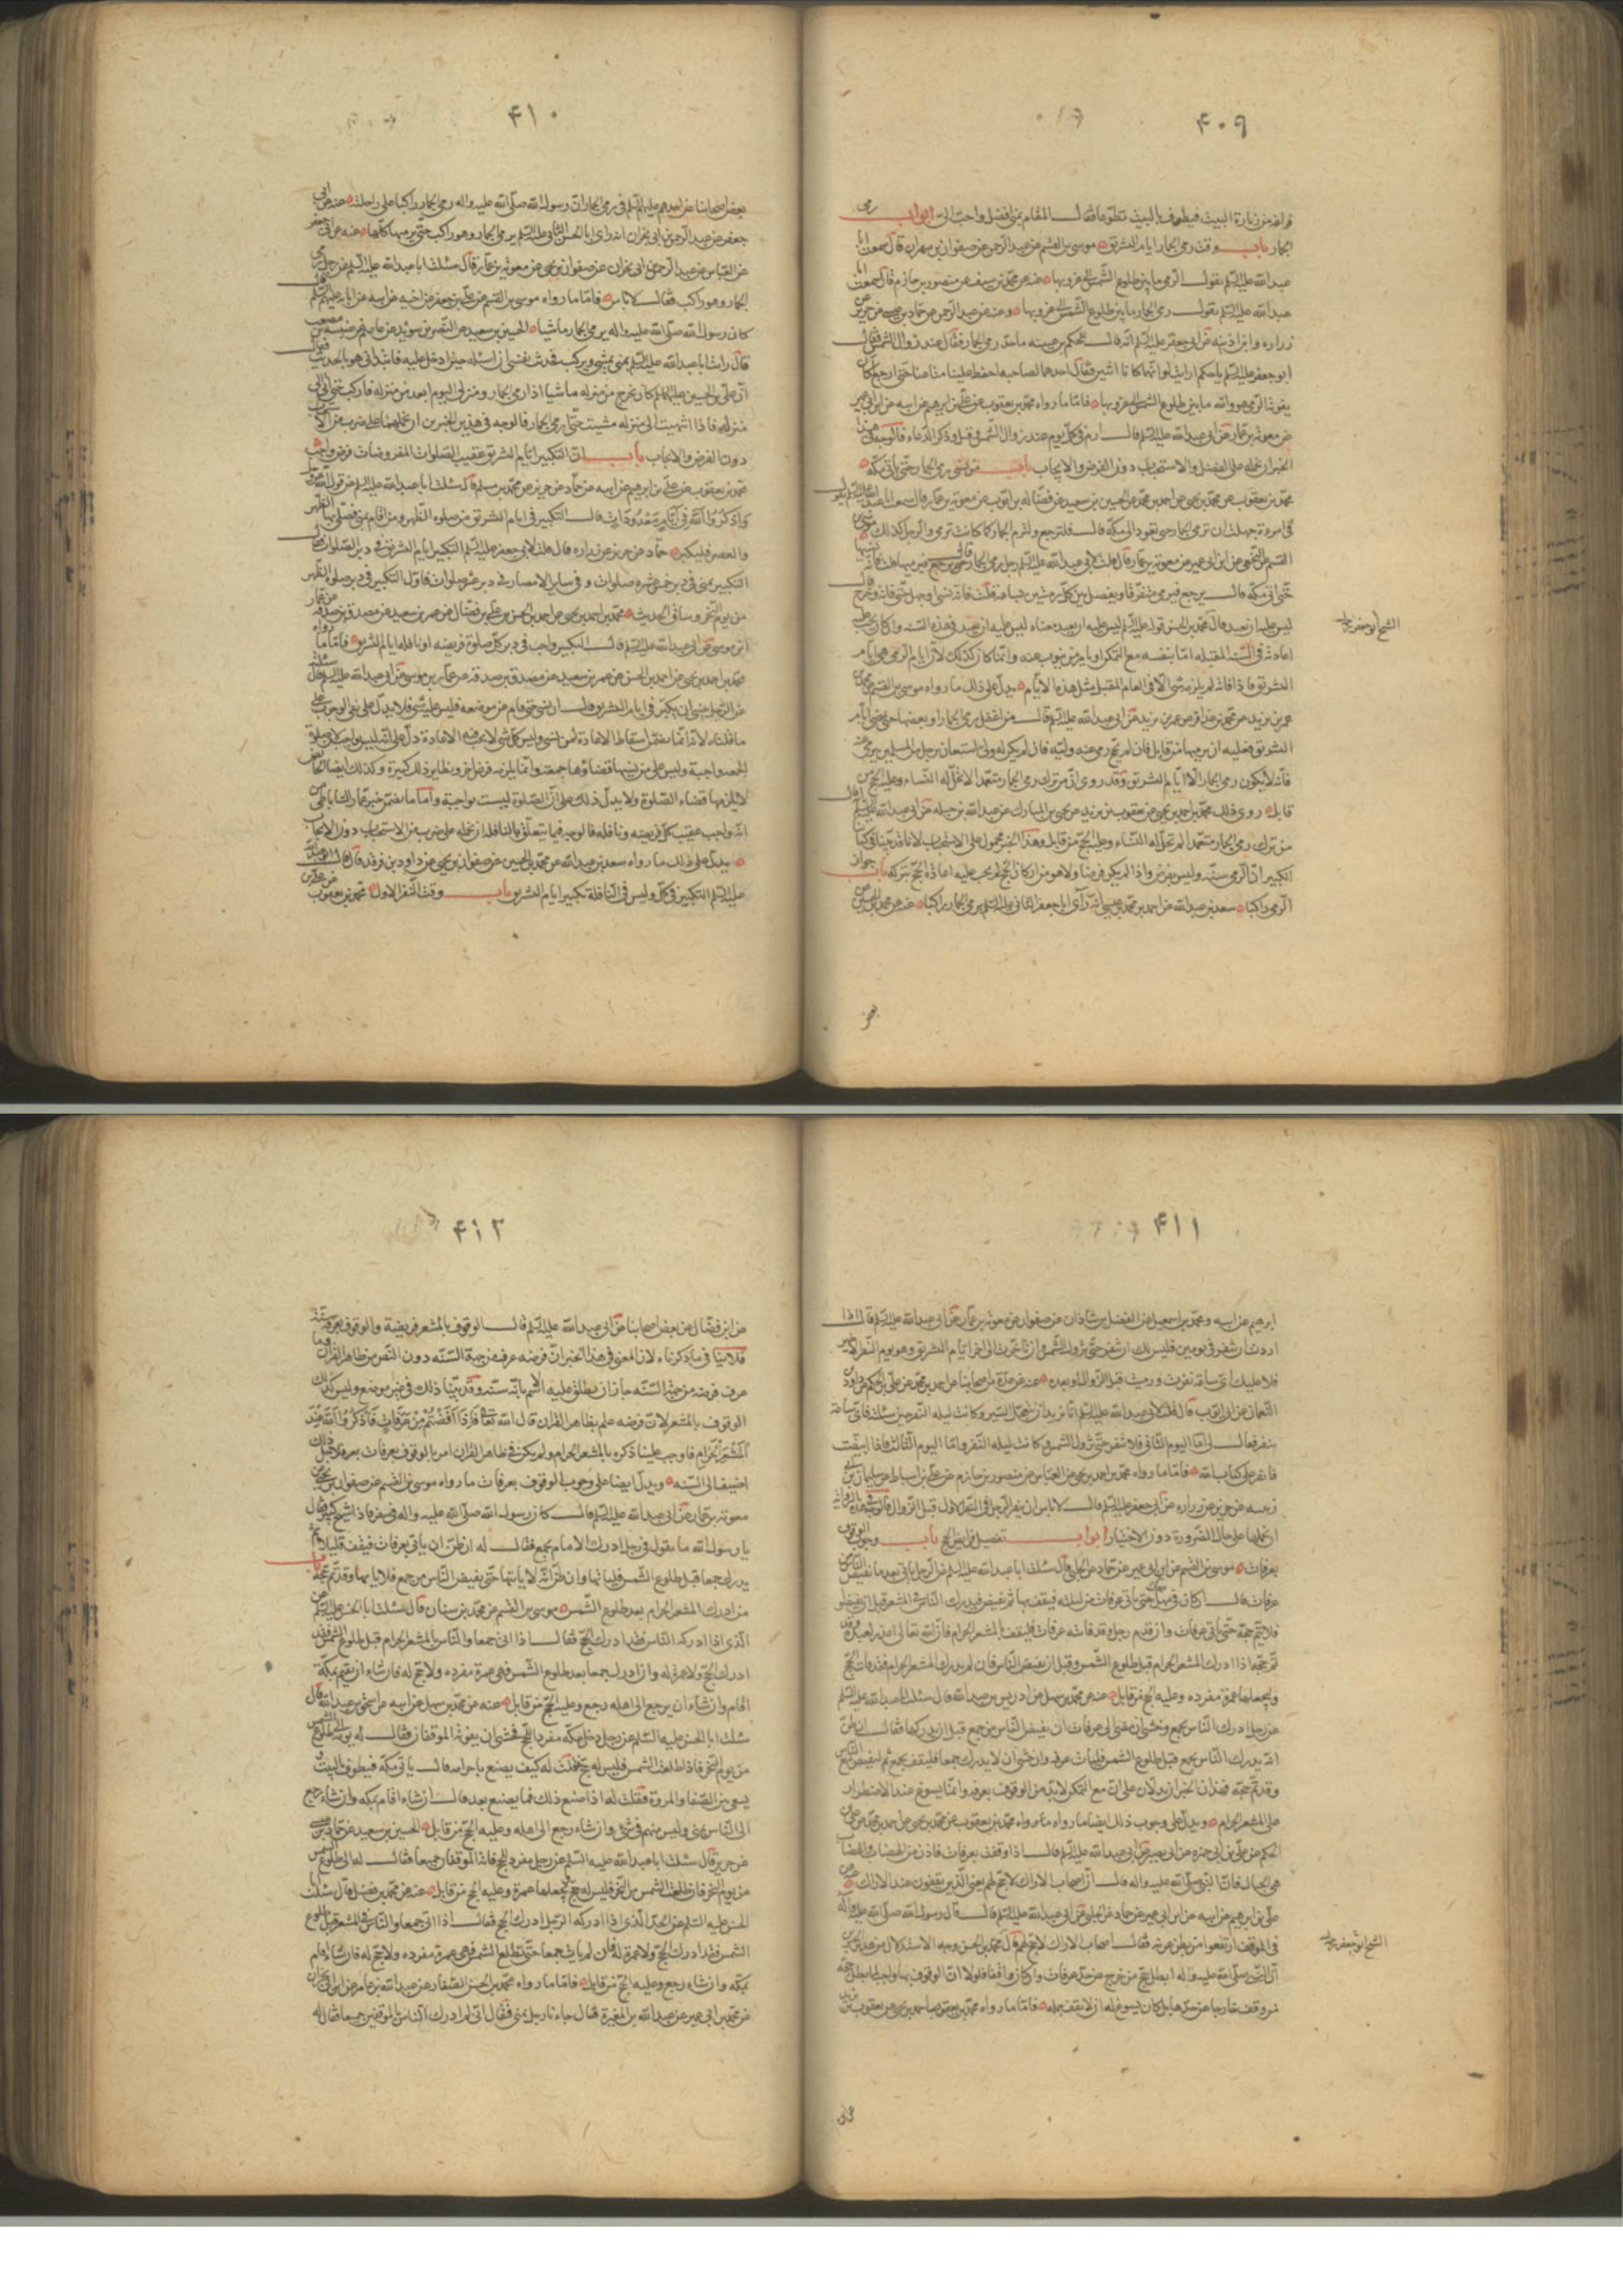 ۴۰۹
فراغه من زيارة البيت فيطوف بالبيت تطوعا فقال المقام بمنى افضل واحب الى ابواب رمى
الجمار باب وقت رمى الجمار ايام التشريق موسى بن القسم عن عبد الرحمن عن صفوان بن مهران قال سمعت ابا
عبد الله عليه السلم يقول الرمى ما بين طلوع الشمس الى غروبها عنه عن محمد عن سيف عن منصور بن حازم قال سمعت ابا
عبد الله عليه السلم يقول رمى الجمار ما بين طلوع الشمس الى غروبها وعنه عن عبد الرحمن عن حماد بن عيسى عن حريز عن
زراره وابن اذينه عن ابى جعفر عليه السلم انه قال للحكم بن عيينه ما حد رمى الجمار فقال عند زوال الشمس فقال
ابو جعفر عليه السلم يا حكم ارايت لو انهما كانا اثنين فقال احدهما لصاحبه احفظ علينا متاعنا حتى ارجع اكان
يفوته الرمى هو والله ما بين طلوع الشمس الى غروبها فاما ما رواه محمد بن يعقوب عن على بن ابرهيم عن ابيه عن ابن ابى عمير
عن معوية بن عمار عن ابى عبد الله عليه السلم قال ارم فى كل يوم عند زوال الشمس وقل وذكر الدعاء فالوجه فى هذا
الخبر ان نحمله على الفضل والاستحباب دون الفرض والايجاب باب من نسى رمى الجمار حتى ياتى مكة
محمد بن يعقوب عن محمد بن يحيى عن احمد بن محمد عن الحسين بن سعيد عن فضالة بن ايوب عن معوية بن عمار قال سمعت ابا عبد الله عليه السلم يقول
فى امرءة جهلت ان ترمى الجمار حتى نفود الى مكة قال فلترجع ولترم الجمار كما كانت ترمى والرجل كذلك موسى بن
القسم عن النخعى عن ابن ابى عمير عن معوية بن عمار قال قلت لابى عبد الله عليه السلم رجل رمى الجمار
حتى اتى مكة قال يرجع فيرمى متفرقا ويفصل بين كل رميتين بساعة قلت فاته نسى او جهل حتى فاته وخرج قال
ليس عليه ان يعيد قال محمد بن الحسن قوله عليه السلم ليس عليه ان يعيد معناه ليس عليه ان يعيد فى هذه السنه وان كان يجب عليه
اعادته فى السنة المقبله اما بنفسه مع التمكن او يامر من ينوب عنه وانما كان كذلك لان ايام الرمى هى ايام
التشريق فاذا فاتت لم يلزمه شى الا فى العام المقبل مثل هذه الايام يدل على ذلك ما رواه موسى بن القسم عن محمد بن
عمر بن يزيد عن محمد بن عذافر عن عمر بن يزيد عن ابى عبد الله عليه السلم قال من اغفل رمى الجمار او بعضها حتى تمضى ايام
التشريق فعليه ان يرميها من قابل فان لم يحج رمى عنه وليه فان لم يكن له ولى استعان برجل من المسلمين يرمى عنه
فانه لا يكون رمى الجمار الا ايام التشريق وقد روى ان من ترك رمى الجمار متعمدا لا تحل له النساء وعليه الحج من
قابل روى ذلك محمد بن احمد بن يحيى عن يعقوب بن يزيد عن يحيى بن المبارك عن عبد الله بن جبله عن ابى عبد الله عليه السلم انه قال
من ترك رمى الجمار متعمدا لم تحل له النساء وعليه الحج من قابل وهذا الخبر محمول على الاستحباب لانا قد بينا فى كتابنا
الكبير ان الرمى سنة وليس بفرض واذا لم يكن فرضا ولا هو من اركان الحج لم يجب عليه اعادة الحج بتركه باب جواز
الرمى راكبا سعد بن عبد الله عن احمد بن محمد بن عيسى انه رأى ابا جعفر الثانى عليه السلم يرمى الجمار راكبا عنه عن محمد بن الحسين عن
بعض
۴۱۰
بعض اصحابنا عن احدهم عليهم السلم فى رمى الجمار ان رسول الله صلى الله عليه واله رمى الجمار راكبا على راحلته عنه عن ابى
جعفر عن عبد الرحمن بن ابى نجران انه رأى ابا الحسن الثانى عليه السلم يرمى الجمار وهو راكب حتى رميها كلها عنه عن ابى جعفر
عن العباس عن عبد الرحمن بن ابى نجران عن صفوان بن يحيى عن معوية بن عمار قال سئلت ابا عبد الله عليه السلم عن رجل رمى
الجمار وهو راكب فقال لا باس فاما ما رواه موسى بن القسم عن على بن جعفر عن اخيه عن ابيه عن ابائه عليهم السلم قال
كان رسول الله صلى الله عليه واله يرمى الجمار ماشيا الحسين بن سعيد عن النضر بن سويد عن عاصم عن عنبسه بن مصعب
قال رايت ابا عبد الله عليه السلم بمنى يمشى ويركب فحدثت نفسى ان اسئله حين ادخل عليه فابتدانى هو بالحديث فقال
ان على بن الحسين عليهما السلم كان يخرج من منزله ماشيا اذا رمى الجمار ومنزلى اليوم ابعد من منزله فاركب حتى اتى الى
منزله فاذا انتهيت الى منزله مشيت حتى ارمى الجمار فالوجه فى هذين الخبرين ان نحملهما على ضرب من الاستحباب
دون الفرض والايجاب باب ان التكبير ايام التشريق عقيب الصلوات المفروضات فرض واجب
محمد بن يعقوب عن على بن ابرهيم عن ابيه عن حماد عن حريز عن محمد بن مسلم قال سئلت ابا عبد الله عليه السلم عن قول الله تعالى
واذكروا الله فى ايام معدودات قال التكبير فى ايام التشريق من صلوة الظهر ومن اقام بمنى فصلى بها الظهر
والعصر فليكبر حماد عن حريز عن زراره قال قلت لابى جعفر عليه السلم التكبير ايام التشريق فى دبر الصلوات فقال
التكبير بمنى فى دبر خمس عشره صلوات وفى ساير الامصار فى دبر عشر صلوات فاول التكبير فى دبر صلوة الظهر
من يوم النحر وساق الحديث محمد بن احمد بن يحيى عن احمد بن الحسن بن على بن فضال عن عمرو بن سعيد عن مصدق بن صدقه عن عمار
بن موسى عن ابى عبد الله عليه السلم قال التكبير واجب فى دبر كل صلوة فريضه او نافله ايام التشريق فاما ما رواه
محمد بن احمد بن يحيى عن احمد بن الحسن عن عمرو بن سعيد عن مصدق بن صدقه عن عمار بن موسى عن ابى عبد الله عليه السلم قال سئلته
عن الرجل ينسى ان يكبر فى ايام التشريق قال ان نسى حتى قام من موضعه فليس عليه شى فلا يدل على نفى الوجوب على
ما قلناه لانه انما يتضمن اسقاط الاعادة لمن نسى وليس كل شى لا يجب فيه الاعادة دل على انه ليس بواجب لان صلوة
الجمعه واجبة وليس على من نسيها قضاؤها جمعة وانما يلزمه فرض اخر ونظاير ذلك كثيرة وكذلك ايضا الحائض
لا يلزمها قضاء الصلوة ولا يدل ذلك على ان الصلوة ليست بواجبة واما ما يتضمن خبر عمار الساباطى من
انه واجب عقيب كل فريضه ونافله فالوجه فيما يتعلق بالنافله ان نحمله على ضرب من الاستحباب دون الايجاب
يدل على ذلك ما رواه سعد بن عبد الله عن محمد بن الحسين عن صفوان بن يحيى عن داود بن فرقد قال قال ابو عبد الله
عليه السلم التكبير فى كل وليس فى النافلة تكبير ايام التشريق باب وقت النفر الاول محمد بن يعقوب عن على بن
الشيخ ابو جعفر
۴۱۱
ابرهيم عن ابيه ومحمد بن اسمعيل عن الفضل بن شاذان عن صفوان عن معوية بن عمار عن ابى عبد الله عليه السلم قال اذا
اردت ان تنفر فى يومين فليس لك ان تنفر حتى تزول الشمس وان تاخرت الى اخر ايام التشريق وهو يوم النفر الاخير
فلا عليك اى ساعة نفرت ورميت قبل الزوال او بعده عنه عن عدة من اصحابنا عن احمد بن محمد عن على بن الحكم عن داود بن
النعمان عن ابى ايوب قال قلت لابى عبد الله عليه السلم انا نريد ان نتعجل السير وكانت ليلة النفر حين سئلته فاى ساعة
ننفر فقال لى اما اليوم الثانى فلا تنفر حتى تزول الشمس وكانت ليلة النفر واما اليوم الثالث فاذا ابيضت
فانفر على كتاب الله فاما ما رواه محمد بن احمد بن يحيى عن العباس عن منصور بن حازم عن على بن اسباط عن سليمان بن ابى
زينبه عن حريز عن زراره عن ابى جعفر عليه السلم قال لا باس ان ينفر الرجل فى النفر الاول قبل الزوال فالوجه فى هذه الرواية
ان نحملها على حال الضرورة دون الاختيار ابواب تفصيل فرايض الحج باب وجوب الوقوف
بعرفات موسى بن القسم عن ابن ابى عمير عن حماد عن الحلبى قال سئلت ابا عبد الله عليه السلم عن الرجل ياتى بعد ما يفيض الناس من
عرفات فقال ان كان فى مهل حتى ياتى عرفات من ليلته فيقف بها ثم يفيض فيدرك الناس فى المشعر قبل ان يفيضوا
فلا يتم حجه حتى ياتى عرفات وان قدم رجل وقد فاتته عرفات فليقف بالمشعر الحرام فان الله تعالى اعذر لعبده وقد
تم حجه اذا ادرك المشعر الحرام قبل طلوع الشمس وقبل ان يفيض الناس فان لم يدرك المشعر الحرام فقد فاته الحج
وليجعلها عمرة مفرده وعليه الحج من قابل عنه عن محمد بن سهل عن ادريس بن عبد الله قال سئلت ابا عبد الله عليه السلم
عن رجل ادرك الناس بجمع وخشى ان مضى الى عرفات ان يفيض الناس من جمع قبل ان يدركها فقال ان ظن
انه يدرك الناس بجمع قبل طلوع الشمس فليات عرفه وان خشى ان لا يدرك جمعا فليقف بجمع ثم ليفيض مع الناس
وقد تم حجه فهذان الخبران يدلان على ان مع التمكن لا بد من الوقوف بعرفه وانما يسوغ عند الاضطرار
على المشعر الحرام ويدل على وجوب ذلك ايضا ما رواه محمد بن يعقوب عن محمد بن يحيى عن احمد بن محمد عن على بن
الحكم عن على بن ابى حمزه عن ابى بصير عن ابى عبد الله عليه السلم قال اذا وقفت بعرفات فادن من الهضاب والهضاب
هى الجبال فان النبى صلى الله عليه واله قال ان اصحاب الاراك لا حج لهم يعنى الذين يقفون عند الاراك عن
على بن ابرهيم عن ابيه عن ابن ابى عمير عن حماد عن الحلبى عن ابى عبد الله عليه السلم قال قال رسول الله صلى الله عليه واله
فى الموقف ارتفعوا من بطن عرنه فقال اصحاب الاراك لا حج لهم قال محمد بن الحسن وجه الاستدلال من هذين الخبرين
ان النبى صلى الله عليه واله ابطل حج من خرج عن حد عرفات وان كان واقفا فلولا ان الوقوف بها واجب لما بطل حج
من وقف خارجا عن حدها بل كان يسوغ له ان لا يقف جمله فاما ما رواه محمد بن يعقوب عن احمد بن يحيى عن يعقوب بن يزيد
الشيخ ابو جعفر
۴۱۲
عن ابن فضال عن بعض اصحابنا عن ابى عبد الله عليه السلم قال الوقوف بالمشعر فريضة والوقوف بعرفة سنة
فلا ينافى ما ذكرناه لان المعنى فى هذا الخبر ان فرضه عرف من جهة السنه دون النص من ظاهر القران وما
عرف فرضه من جهة السنه جاز ان يطلق عليه الاسم بانه سنه وقد بينا ذلك فى غير موضع وليس كذلك
الوقوف بالمشعر لان فرضه علم بظاهر القران قال الله تعالى فاذا افضتم من عرفات فاذكروا الله عند
المشعر الحرام فاوجب علينا ذكره بالمشعر الحرام ولم يكن فى ظاهر القران امر بالوقوف بعرفات فلاجل ذلك
اضيف الى السنه ويدل ايضا على وجوب الوقوف بعرفات ما رواه موسى بن القسم عن صفوان بن يحيى عن
معوية بن عمار عن ابى عبد الله عليه السلم قال كان رسول الله صلى الله عليه واله فى سفر فاذا شيخ كبير فقال
يا رسول الله ما تقول فى رجل ادرك الامام بجمع فقال له ان ظن ان ياتى عرفات فيقف قليلا ثم
يدرك جمعا قبل طلوع الشمس فلياتها وان ظن انه لا ياتيها حتى يفيض الناس من جمع فلا ياتها وقد تم حجه باب
من ادرك المشعر الحرام بعد طلوع الشمس موسى بن القسم عن محمد بن سنان قال سئلت ابا الحسن عليه السلم عن
الذى اذا ادركه الناس فقد ادرك الحج فقال اذا اتى جمعا والناس بالمشعر الحرام قبل طلوع الشمس فقد
ادرك الحج ولا عمرة له وان ادرك جمعا بعد طلوع الشمس فهى عمرة مفرده ولا حج له فان شاء ان يقيم بمكة
اقام وان شاء ان يرجع الى اهله رجع وعليه الحج من قابل عنه عن محمد بن سهل عن ابيه عن اسحق بن عبد الله قال
سئلت ابا الحسن عليه السلم عن رجل دخل مكة مفردا للحج فخشى ان يفوته الموقفان فقال له يومه الى طلوع الشمس
من يوم النحر فاذا طلعت الشمس فليس له حج فقلت له كيف يصنع باحرامه قال ياتى مكة فيطوف بالبيت و
يسعى بين الصفا والمروة فقلت له اذا صنع ذلك فما يصنع بعد قال ان شاء اقام بمكه وان شاء رجع
الى الناس بمنى وليس منهم فى شى وان شاء رجع الى اهله وعليه الحج من قابل الحسين بن سعيد عن حماد بن عيسى
عن حريز قال سئلت ابا عبد الله عليه السلم عن رجل مفرد للحج فاته الموقفان جميعا فقال له الى طلوع الشمس
من يوم النحر فان طلعت الشمس من النحر فليس له حج ويجعلها عمرة وعليه الحج من قابل عنه عن محمد بن فضيل قال سئلت
ابا الحسن عليه السلم عن الحد الذى اذا ادركه الرجل ادرك الحج فقال اذا اتى جمعا والناس فى المشعر قبل طلوع
الشمس فقد ادرك الحج ولا عمرة له فان لم يات جمعا حتى تطلع الشمس فهى عمرة مفرده ولا حج له فان شاء اقام
بمكه وان شاء رجع وعليه الحج من قابل فاما ما رواه محمد بن الحسن الصفار عن عبد الله بن عامر عن ابن ابى نجران
عن محمد بن ابى عمير عن عبد الله بن المغيرة قال جاءنا رجل بمنى فقال انى لم ادرك الناس بالموقفين جميعا فقال له